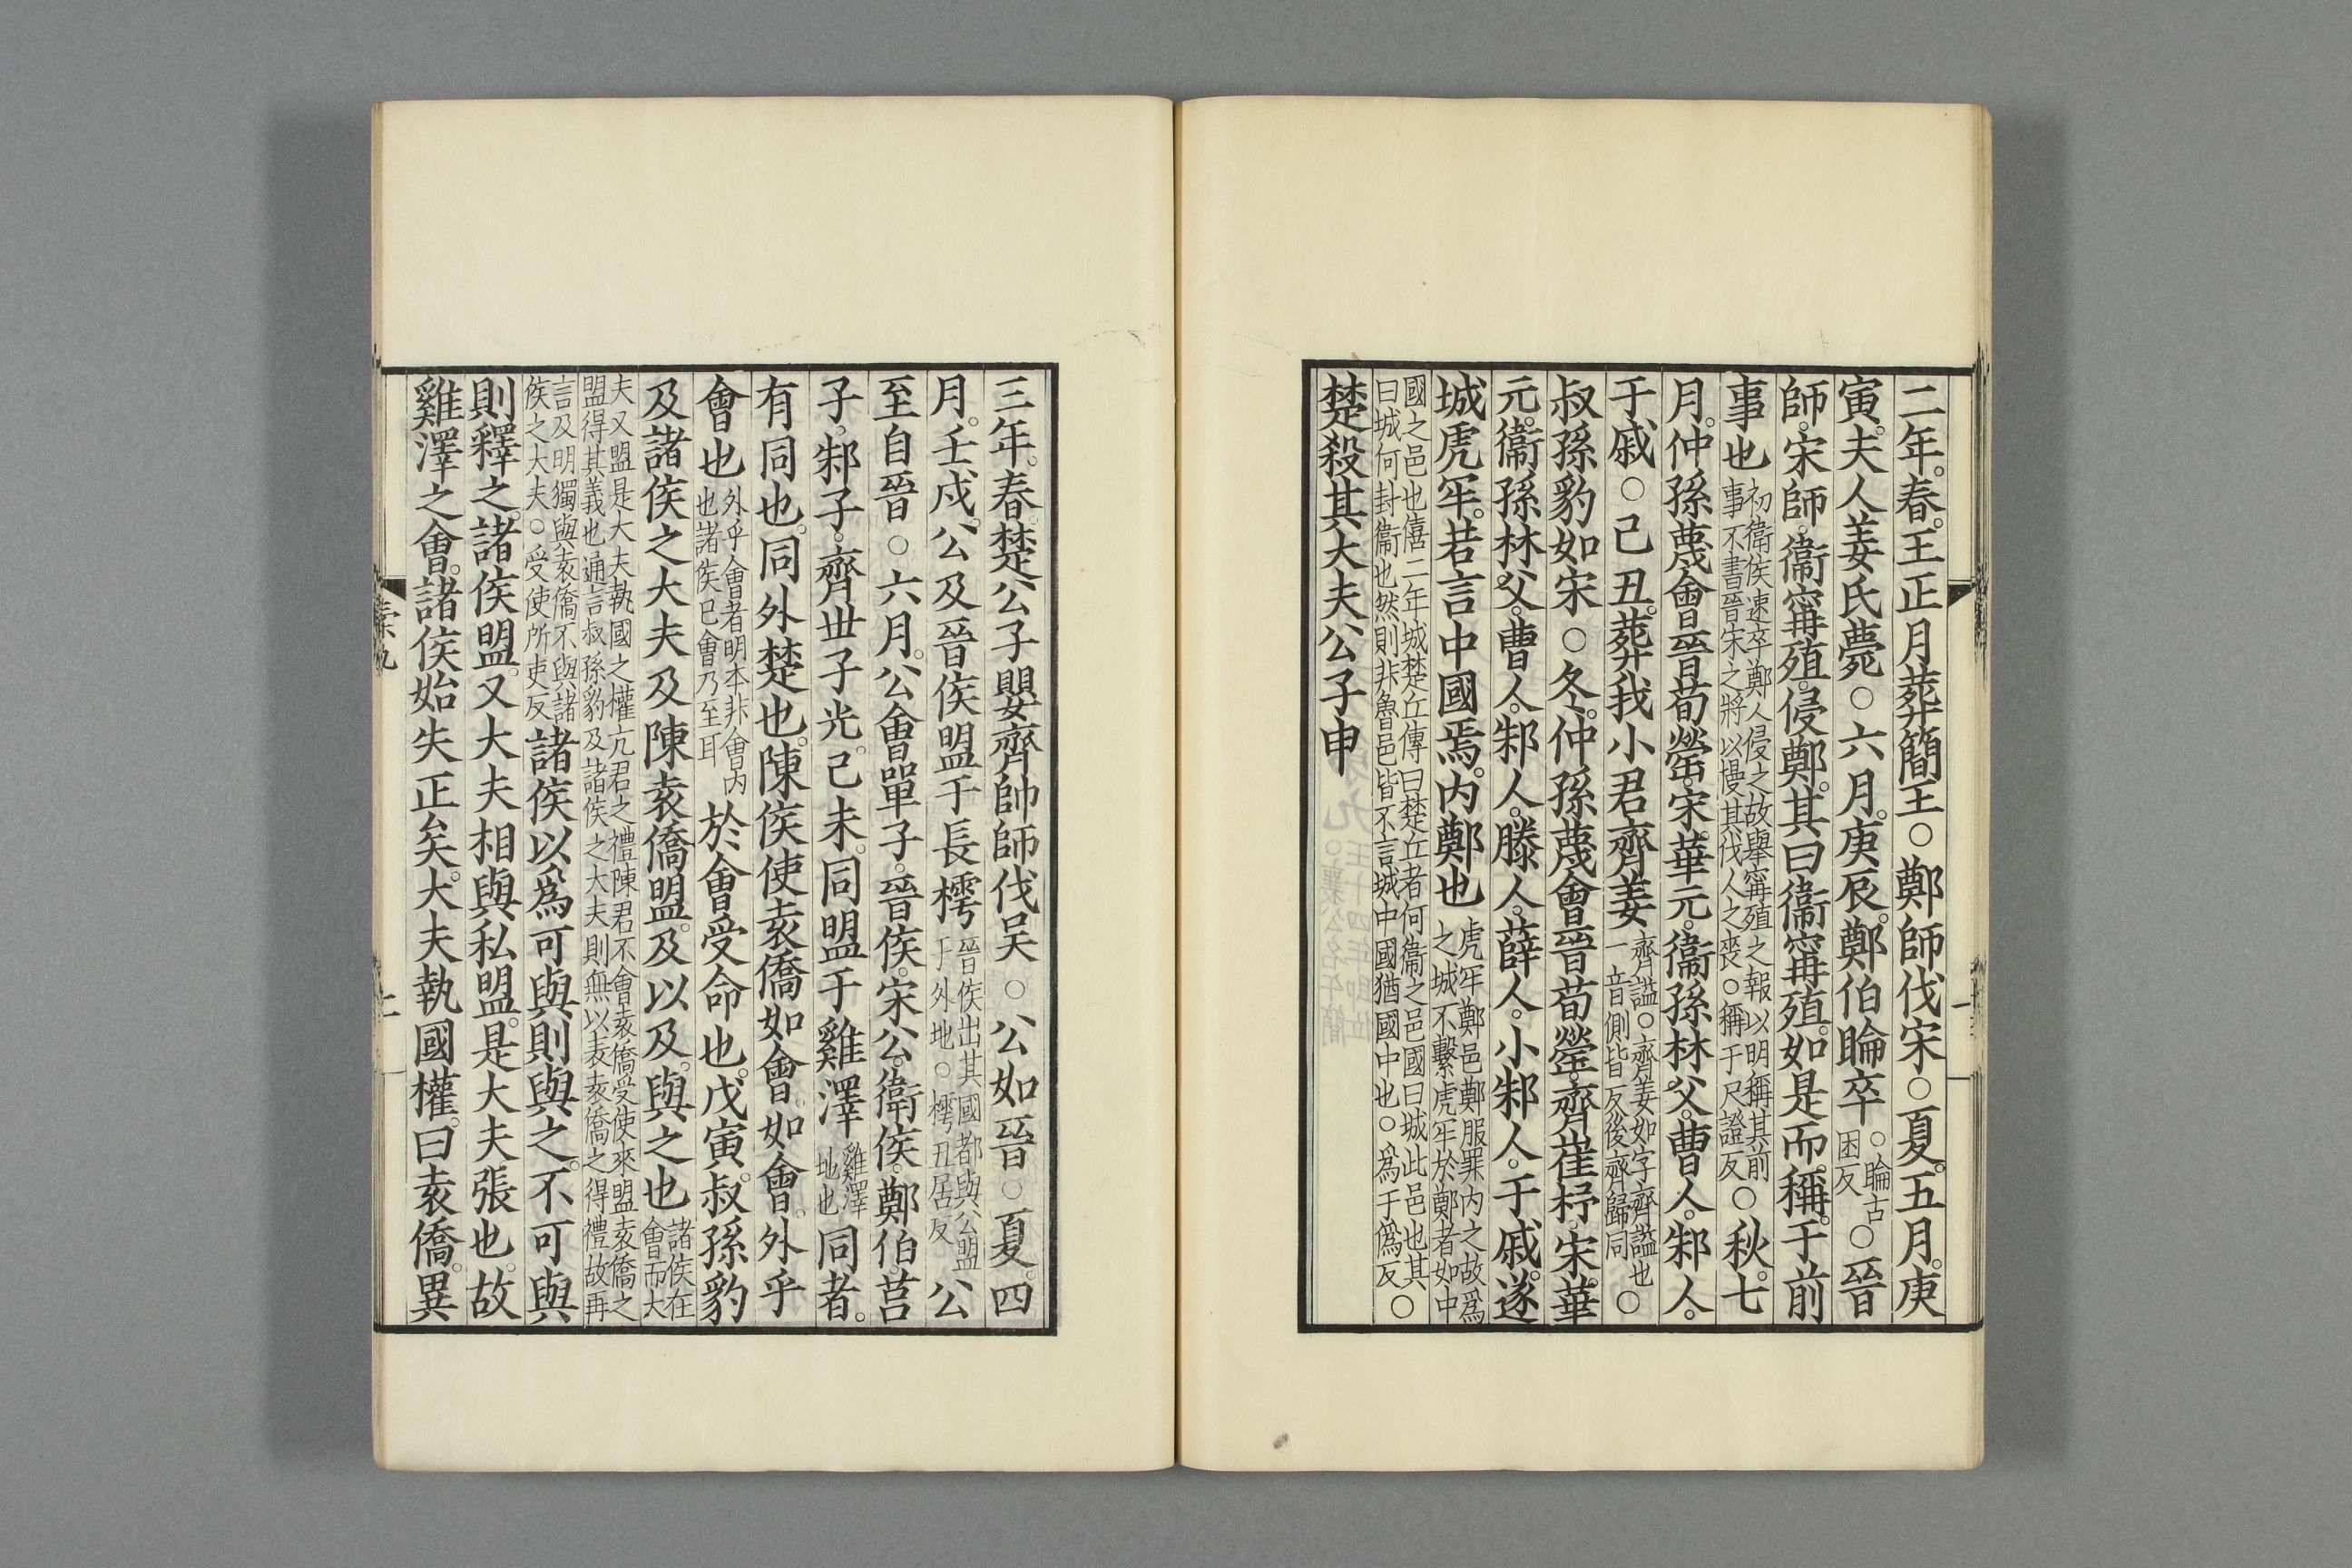 二年。春。王正月葬簡王○鄭師伐宋○夏。五月。庚
寅。夫人姜氏薨○六月。庚辰。鄭伯睔卒○睔古困反○晉
師。宋師。衞甯殖。侵鄭。其曰衞甯殖。如是而。稱。于前
事也初衞侯速卒鄭人侵之故舉甯殖之報以明稱其前事不書晉宋之將以慢其伐人之喪○稱于尺證反○秋。七
月。仲孫蔑會晉荀罃。宋華元。衞孫林父。曹人。邾人。
于戚○己丑。葬我小君齊姜齊謚○齊姜如字齊謚也一音側皆反後齊歸同○
叔孫豹如宋○冬。仲孫蔑會晉荀罃。齊崔杼。宋華
元。衞孫林父。曹人。邾人。滕人。薛人。小邾人。于戚。遂
城虎牢。若言中國焉。內鄭也虎牢鄭邑鄭服罪內之故爲之城不繫虎牢於鄭者如中
國之邑也僖二年城楚丘傳曰楚丘者何衞之邑國曰城此邑也其曰城何封衞也然則非魯邑皆不言城中國猶國中也○爲于僞反○
楚殺其大夫公子申
三年。春。楚公子嬰齊帥師伐吴○公如晉○夏。四
月。壬戌。公及晉侯盟于長樗晉侯出其國都與公盟于外地○樗丑居反公
至自晉○六月。公會單子。晉侯。宋公。衞侯。鄭伯。莒
子。邾子。齊世子光。己未。同盟于雞澤雞澤地也同者。
有同也。同外楚也。陳侯使袁僑如會。如會。外乎
會也外乎會者明本非會內也諸侯已會乃至耳於會受命也。戊寅。叔孫豹
及諸侯之大夫及陳袁僑盟。及以及。與之也諸侯在會而大
夫又盟是大夫執國之權亢君之禮陳君不會袁僑受使來盟袁僑之盟得其義也通言叔孫豹及諸侯之大夫則無以表袁僑之得禮故再
言及明獨與袁僑不與諸侯之大夫○受使所吏反諸侯以爲可與則與之。不可與
則釋之。諸侯盟。又大夫相與私盟。是大夫張也。故
雞澤之會。諸侯始失正矣。大夫執國權。曰袁僑。異